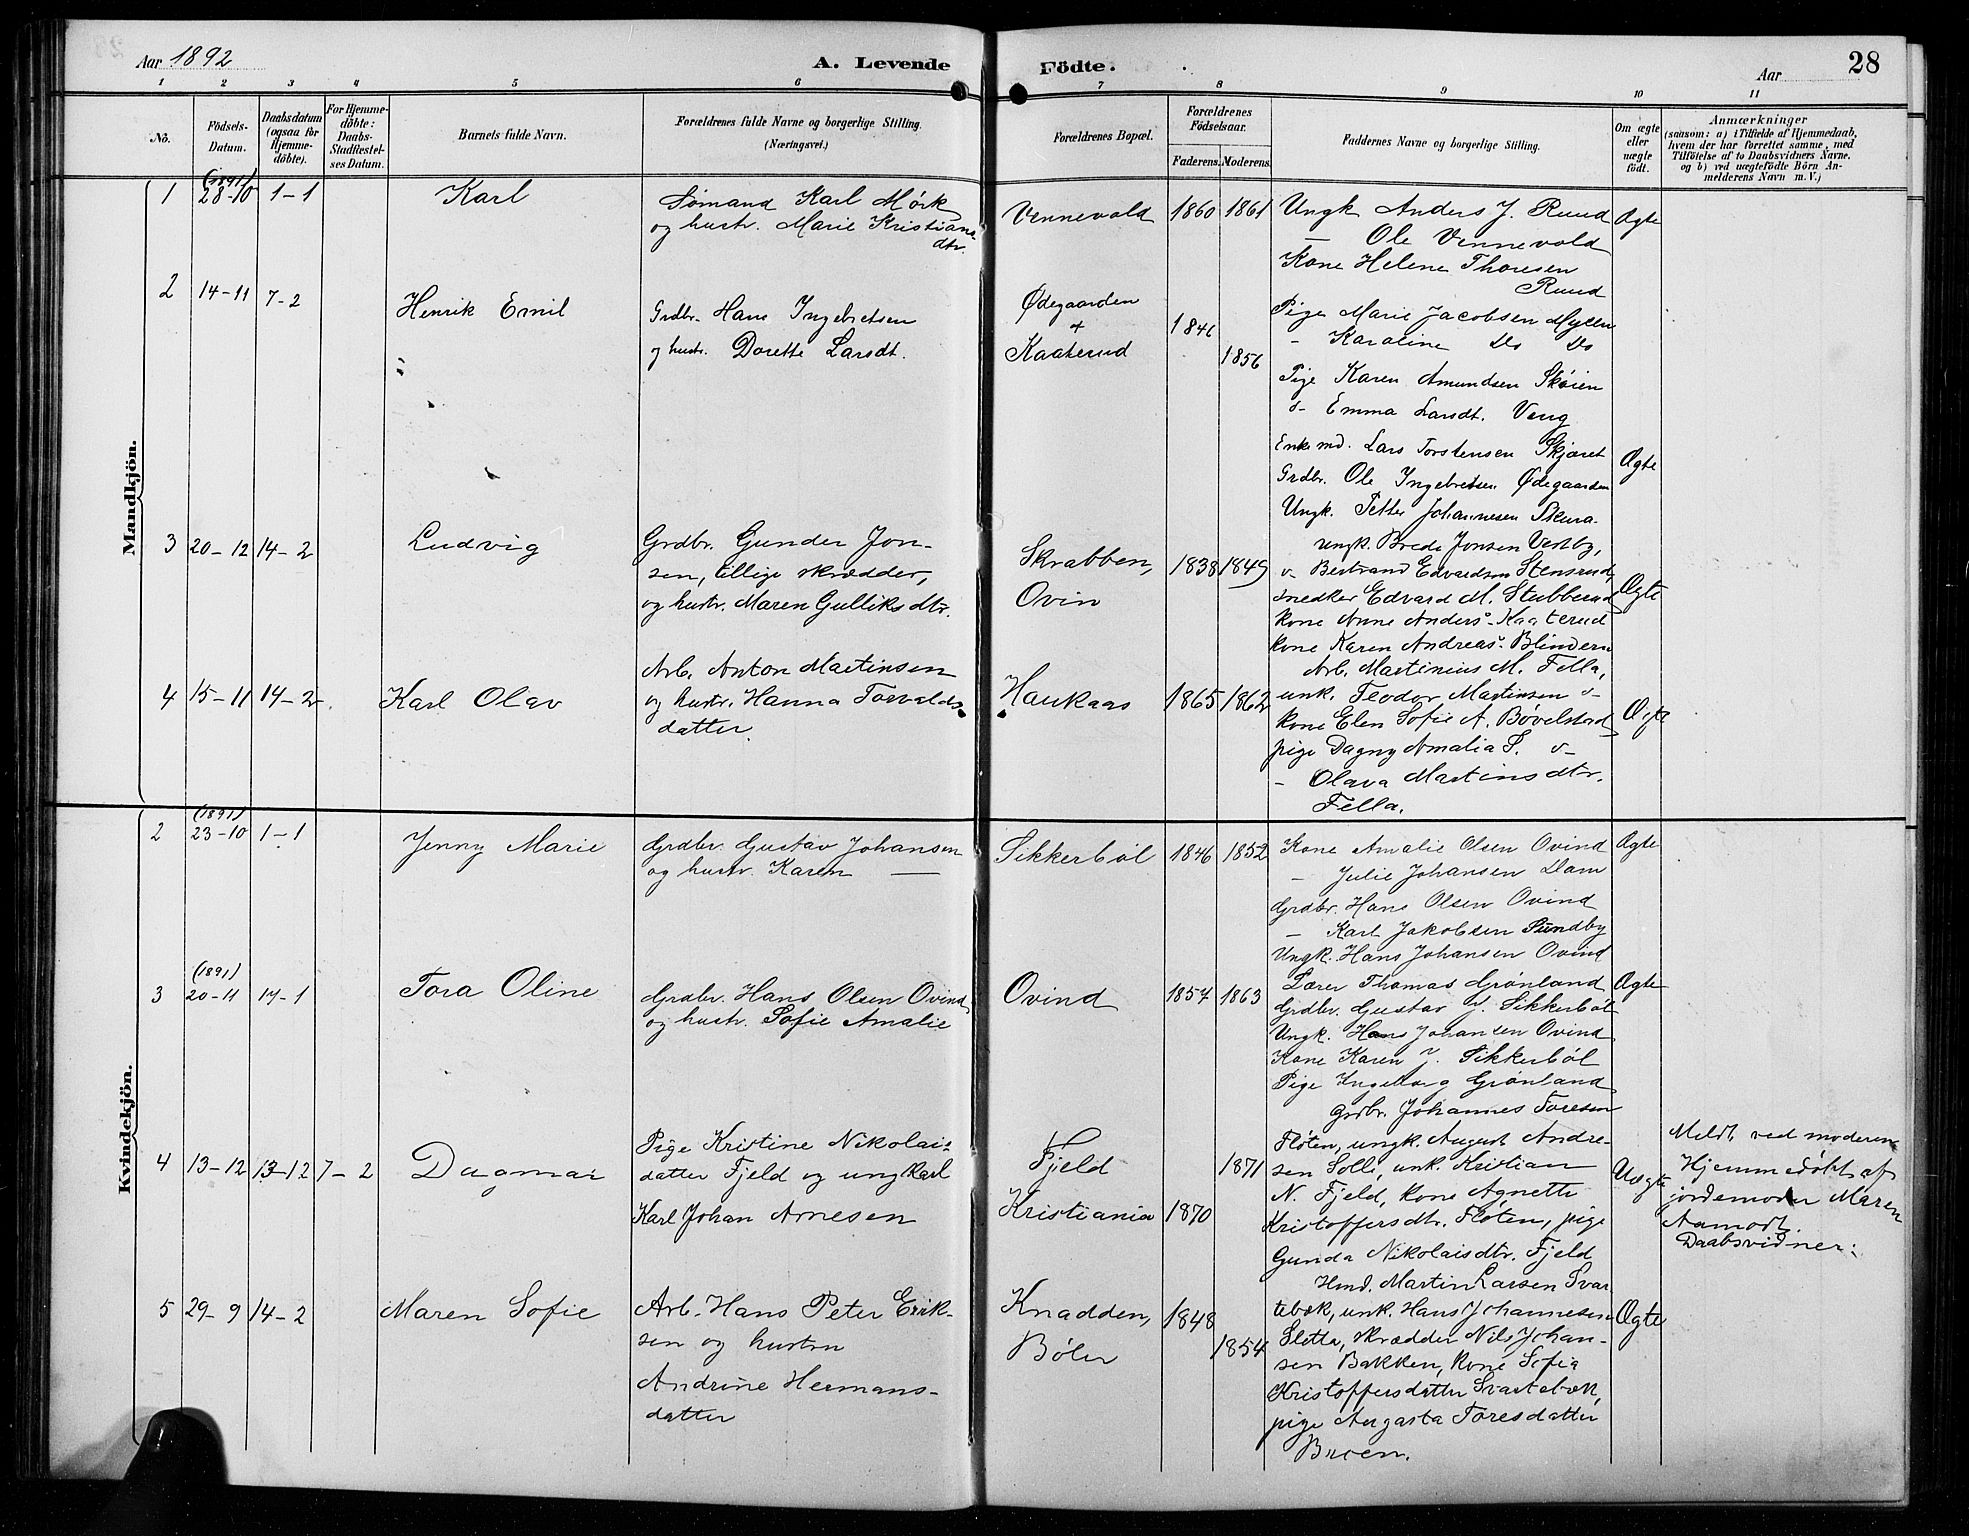 Aar 1892
A. Levende
Födte.
Aar
28
1 2 3 4 5 6 7 8 9 10 11
No.
Födsels-
Datum.
Daabsdatum
(ogsaa for
Hjemme-
döbte).
For Hjemme-
döbte:
Daabs-
Stadfæstel-
ses Datum.
Barnets fulde Navn.
Forældrenes fulde Navne og borgerlige Stilling.
(Næringsvei.)
Forældrenes Bopæl.
Forældrenes
Födselsaar.
Faderens.
Moderens.
Faddernes Navne og borgerlige Stilling.
Om ægte
eller
uægte
födt.
Anmærkninger
(saasom: a) i Tilfælde af Hjemmedaab,
hvem der har forrettet samme, med
Tilföielse af to Daabsvidners Navne.
og b) ved uægtefödte Börn An-
melderens Navn m. V.)
Mandkjön.
1
(1891)
28-10
1-1
Karl
Sømand Karl Mørk
og hustr. Marie Kristians
dtr.
Vennevold
1860
1861
Ungk Anders J. Ruud
— Ole Vennevold
Kone Helene Thoresen
Ruud
Ægte
2
14-11
7-2
Henrik Emil
Grdbr. Hans Ingebretsen
og hustr. Dorette Larsdt.
Ødegaarden
+
Kaaterud
1846
1856
Pige Marie Jacobsen Myllen
- Karoline Do Do
Pige Karen Amundsen Skøien
- Emma Larsdt. Veng
Enkemd. Lars Torstensen Skjæret
Grdbr. Ole Ingebretsen Ødegaarden
Ungk. Petter Johannesen Skura
Ægte
3
20-12
14-2
Ludvig
Grdbr. Gunder Jon-
sen, tillige skrædder,
og hustr. Maren Gulliksdtr.
Skrabben,
Ovin
1838
1849
ungk. Brede Jonsen Vestby,
Bertrand Edvardsen Stensrud,
snedker Edvard M. Stubberud
kone Anne Anders- Kaaterud
kone Karen Andreas- Blindern
Ægte
4
15-11
14-2
Karl Olav
Arb. Anton Martinsen
og hustr. Hanna Torvalds
datter
Haukaas
1865
1862
Arb. Martinius M. Fella,
unk. Teodor Martinsen
kone Elen Sofie A. Bøvelstad
pige Dagny Amalia S.
- Olava Martinsdtr.
Fella.
Ægte
Kvindekjön.
2
(1891)
23-10
1-1
Jenny Marie
Grdbr. Gustav Johansen
og hustr. Karen —
Sikkerbøl
1846
1852
Kone Amalie Olsen Ovind
— Julie Johansen Dam
Grdbr. Hans Olsen Ovind
— Karl Jakobsen Sundby
Ungk. Hans Johansen Ovind
Ægte
3
(1891)
20-11
17-1
Tora Oline
Grdbr. Hans Olsen Ovind
og hustr. Sofie Amalie
Ovind
1857
1863
Lærer Thomas Grønland
Grdbr. Gustav J. Sikkerbøl
Ungk. Hans Johansen Ovind
Kone Karen J. Sikkerbøl
Pige Ingeborg Grønland
Ægte
4
13-12
13-12
7-2
Dagmar
Pige Kristine Nikolai-
datter Fjeld og ungkarl
Karl Johan Arnesen
Fjeld
Kristiania
1870
1871
Grdbr. Johannes Toresen
Fløten, ungk. August Andre-
sen Solli, unk. Kristian
N. Fjeld, kone Agnette
Kristoffersdtr. Fløten, pige
Gunda Nikolaisdtr. Fjeld
Uægte
Meldt ved moderen
Hjemmedøbt af
jordemoder Maren
Aamodt.
Daabsvidner:
5
29-9
14-2
Maren Sofie
Arb. Hans Peter Erik-
sen og hustru
Andrine Hermans-
datter
Knadden,
Bøler
1848
1854
Hmd. Martin Larsen Svar
tebæk, unk. Hans Johannesen
Sletta, skrædder Nils Johan-
sen Bakken, kone Sofia
Kristoffersdatter Svartebæk,
pige Augasta Toresdatter
Broen.
Ægte